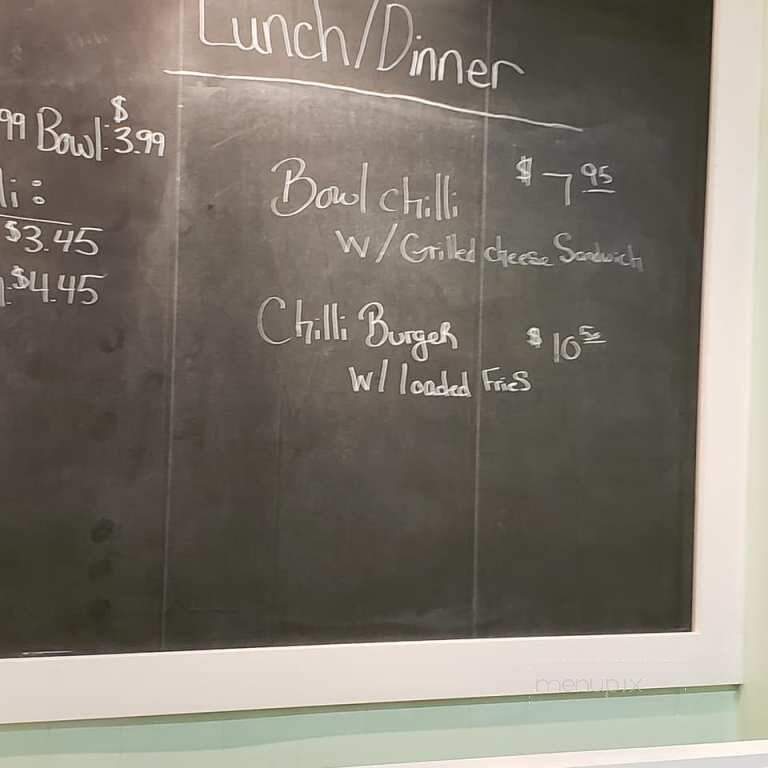 Lunch/Dinner
99 Bowl: $3.99
li:
$3.45
$4.45
Bowl chilli $7 95
W/Grilled cheese Sandwich
Chilli Burger $10 50
W/ loaded Fries
menupix